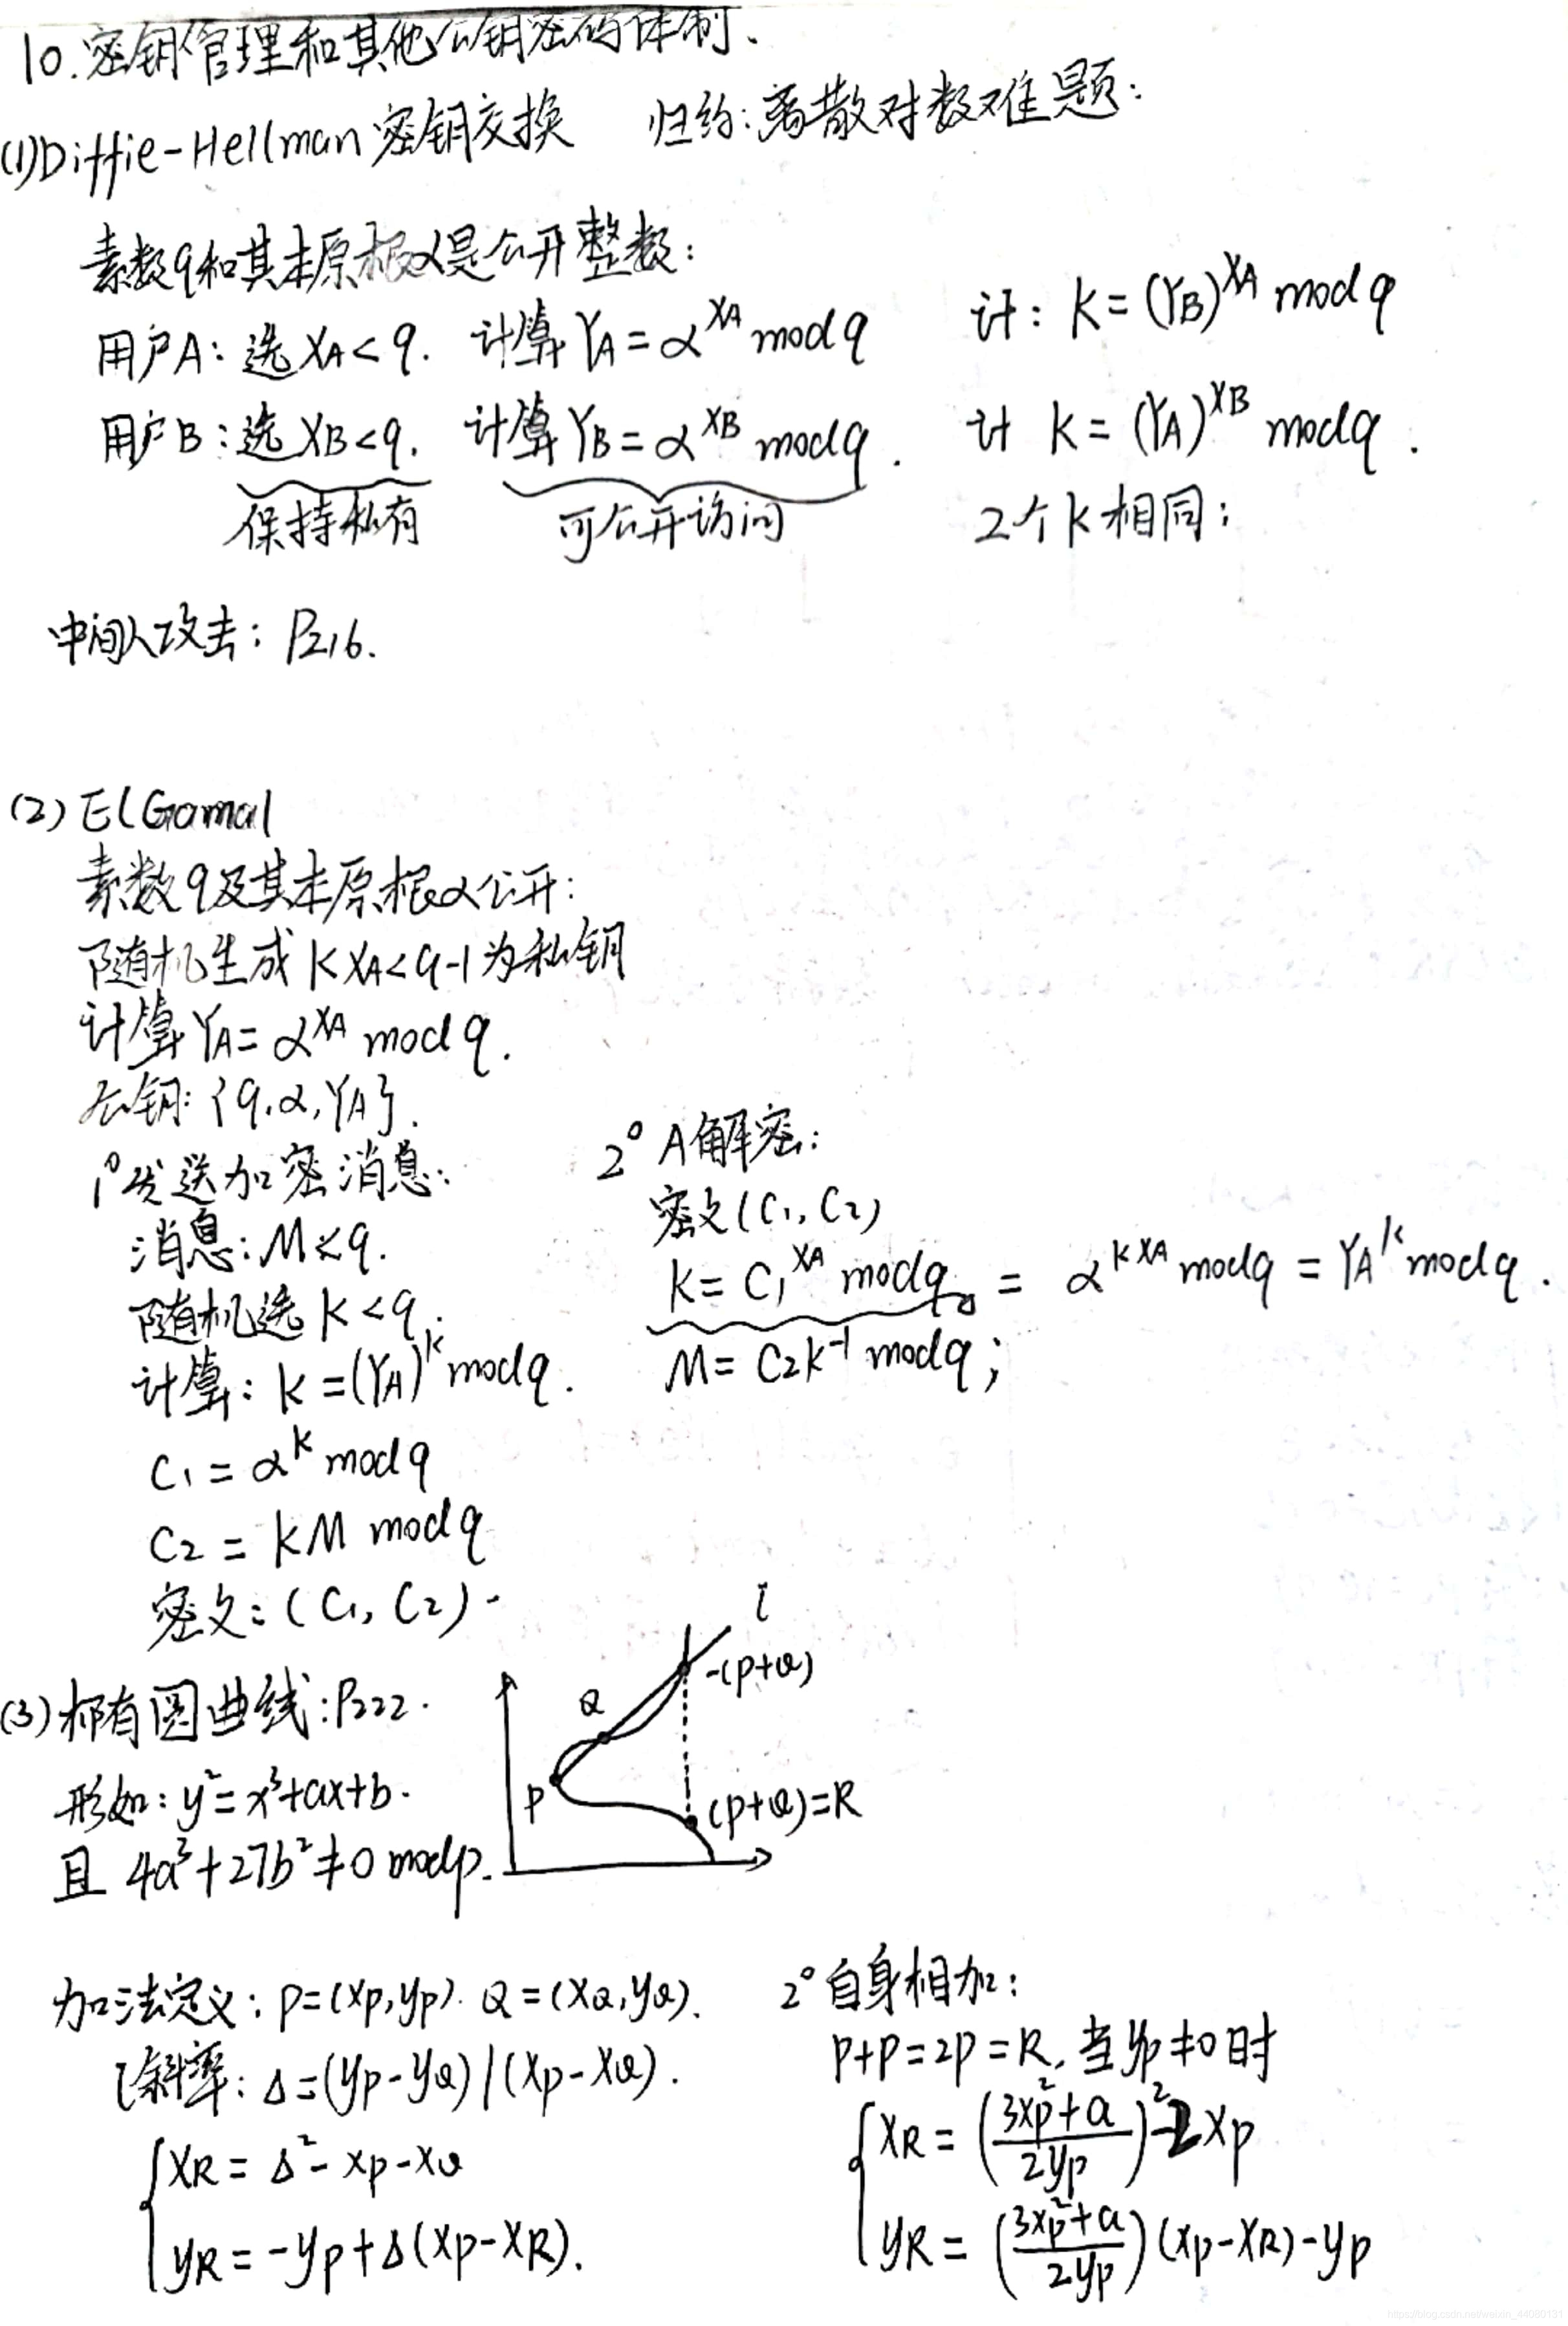 10.密钥管理和其他公钥密码体制、
(1)Diffie-Hellman密钥交换 归约:离散对数难题:
素数q和其本原根α是公开整数:
用户A: 选XA<q. 计算YA=α^XA mod q 计: K=(YB)^XA mod q
用户B:选XB<q. 计算YB=α^XB mod q. 计 K=(YA)^XB mod q.
保持私有 可公开访问 2个K相同;
中间人攻击: P216.
(2) ElGamal
素数q及其本原根α公开:
随机生成1<XA<q-1为私钥
计算YA=α^XA mod q.
公钥:{q,α,YA}.
1°发送加密消息:
消息:M<q.
随机选K<q.
计算: K=(YA)^k mod q.
C1=α^k mod q
C2=KM mod q
密文:(C1, C2).
2° A解密:
密文(C1, C2)
K=C1^XA mod q = α^kXA mod q = YA^k mod q.
M=C2K^-1 mod q;
(3)椭圆曲线:P222.
形如: y²=x³+ax+b.
且 4a³+27b²≠0 mod p.
l
-(P+Q)
Q
P
(P+Q)=R
加法定义: P=(xP,yP). Q=(xQ,yQ).
l斜率: Δ=(yP-yQ)/(xP-xQ).
xR=Δ²-xP-xQ
yR=-yP+Δ(xP-xR).
2°自身相加:
P+P=2P=R, 当yP≠0时
xR=((3xP²+a)/2yP)²-2xP
yR=((3xP²+a)/2yP)(xP-xR)-yP
https://blog.csdn.net/weixin_44080131